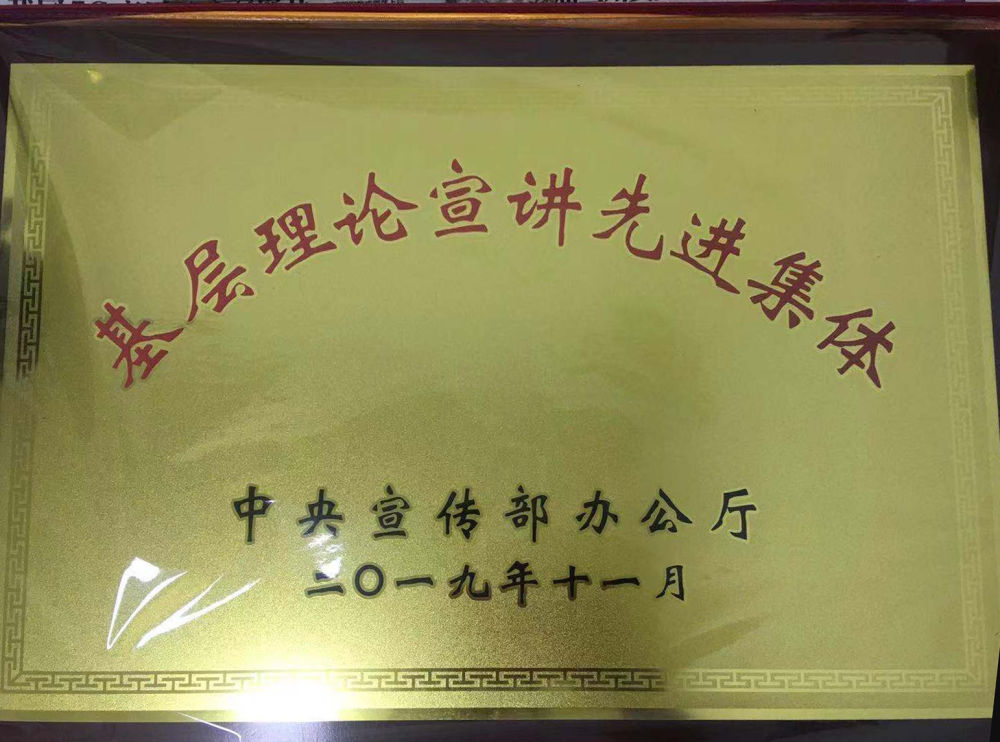 基层理论宣讲先进集体
中央宣传部办公厅
二〇一九年十一月